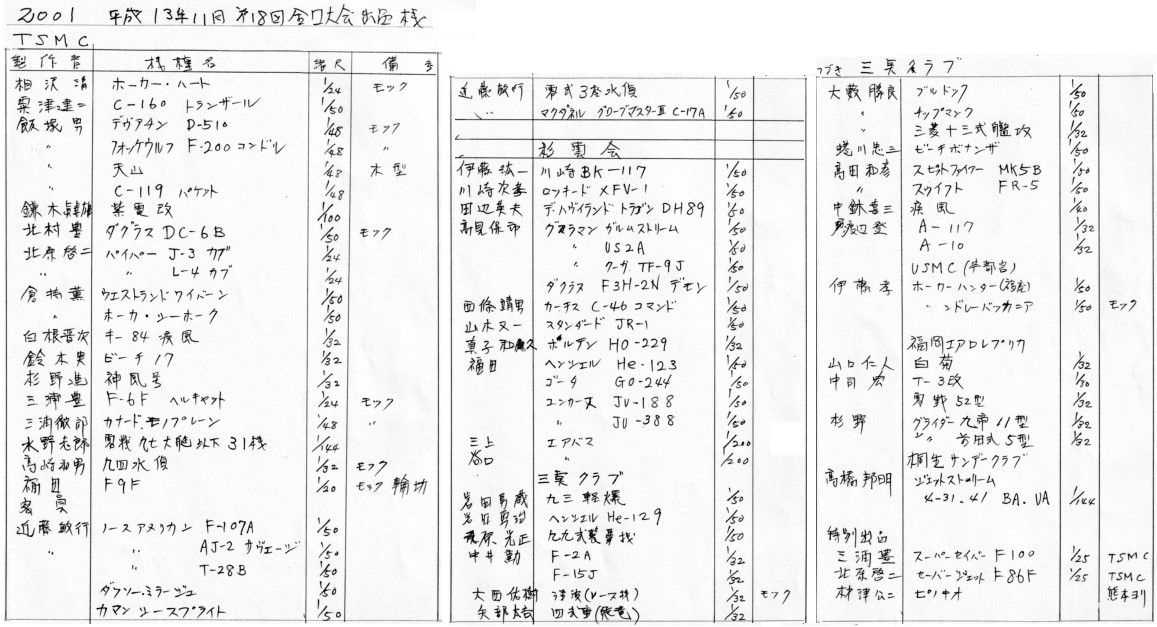 2001 平成13年11月 第18回全日大会出品機
TSMC
製作者 機種名 縮尺 備考
相沢 清 ホーカー・ハート 1/24 モック
粟津達二 C-160 トランザール 1/50
飯塚 男 デヴアチン D-510 1/48 モック
〃 フォッケウルフ F-200コンドル 1/48 〃
〃 天山 1/48 木型
〃 C-119 パケット 1/48
鎌木 紫電改 1/100
北村 豊 ダグラス DC-6B 1/50 モック
北原啓二 パイパー J-3 カブ 1/24
〃 〃 L-4 カブ 1/24
倉持薫 ウエストランドワイバーン 1/50
〃 ホーカ・シーホーク 1/50
白根晋次 キー84 疾風 1/32
鈴木 ビーチ17 1/32
杉野進 神風号 1/32
三浦 豊 F-6F ヘルキャット 1/24 モック
三浦徹郎 カナードモノプレーン 1/48 〃
水野志郎 零戦 九七大艇以下 31機 1/144
高崎 男 九四水偵 1/32 モック
福田 F9F 1/20 モック
客員
近藤敏行 ノースアメリカン F-107A 1/50
〃 〃 AJ-2 サヴェージ 1/50
〃 T-28B 1/50
ダッソーミラージュ 1/50
カマン シースプライト 1/50
近藤敏行 零式3座水偵 1/50
〃 マクダネル グローブマスターⅢ C-17A 1/50
彩雲会
伊藤 一 川崎BK-117 1/50
川崎次孝 ロッキード XFV-1 1/50
田辺英夫 デ・ハヴィランド ドラゴン DH89 1/50
高見保郎 グラマン ガルムストリーム 1/50
〃 US2A 1/50
〃 クーガ TF-9J 1/50
ダグラス F3H-2N デモン 1/50
西條靖男 カーチス C-46 コマンド 1/50
山本又一 スタンダード JR-1 1/50
真子 ホルテン HO-229 1/32
福田 ヘンシェル He-123 1/50
ゴータ GO-244 1/50
ユンカース JU-188 1/50
〃 JU-388 1/50
三上 エアバス 1/200
谷口 〃 1/200
三翼クラブ
岩田勇蔵 九三軽爆 1/50
岩田勇治 ヘンシェル He-129 1/50
光正 九九式襲撃機 1/50
中井 勤 F-2A 1/32
F-15J 1/32
大西佑樹 (レース機) 1/32 モック
矢部 四式重(飛竜) 1/32
つづき 三翼クラブ
大薮勝良 ブルドック 1/50
〃 チップマンク 1/50
〃 三菱十三式艦攻 1/32
蜷川忠三 ビーチボナンザ 1/50
高田和彦 スピットファイヤー MK5B 1/50
〃 スウィフト FR-5 1/50
中 喜三 疾風 1/40
渡辺登 A-117 1/32
A-10 1/32
USMC (宇都宮)
伊藤 孝 ホーカーハンター(複座) 1/50
〃 バッカニア 1/50 モック
福岡エアロレプリカ
山口仁人 白菊 1/32
中司 宏 T-3改 1/50
零戦52型 1/32
杉野 グライダー 九帝11型 1/32
〃 前田式5型 1/32
桐生サンデークラブ
高橋邦明 ジェットストリーム
4-31.41 BA.UA 1/144
特別出品
三浦 豊 スーパーセイバー F100 1/25 TSMC
北原啓二 セーバージェット F86F 1/25 TSMC
材津公二 ピノキオ 熊本ヨリ